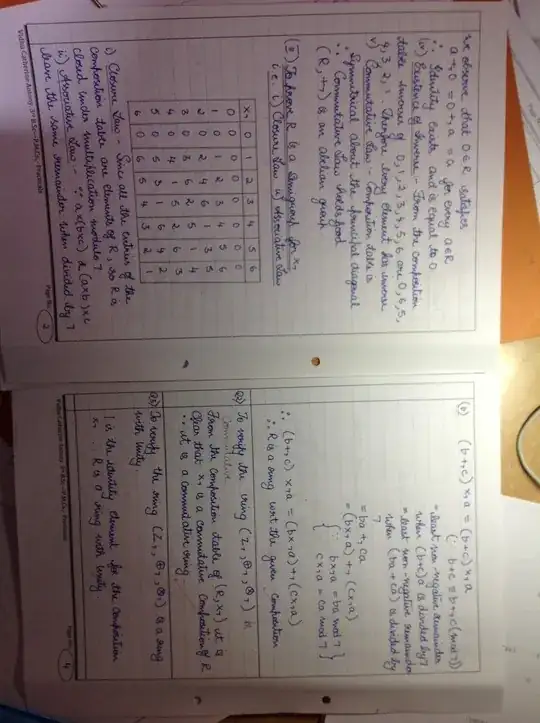 We observe that 0 ∈ R satisfies
a +₇ 0 = 0 +₇ a = a for every a ∈ R,
∴ Identity exists and is equal to 0
(iv) Existence of Inverse :- From the composition
table inverse of 0, 1, 2, 3, 4, 5, 6 are 0, 6, 5,
4, 3, 2, 1. Therefore every element has inverse
v) Commutative Law :- Composition table is
Symmetrical about the principal diagonal
∴ Commutative Law holds good
(R, +₇) is an abelian group
(II) To prove R is a Semigroup for ×₇
i.e. i) Closure Law ii) Associative Law
×₇ 0 1 2 3 4 5 6
0 0 0 0 0 0 0 0
1 0 1 2 3 4 5 6
2 0 2 4 6 1 3 5
3 0 3 6 2 5 1 4
4 0 4 1 5 2 6 3
5 0 5 3 1 6 4 2
6 0 6 5 4 3 2 1
i) Closure Law :- Since all the entries of the
composition table are elements of R, so R is
closed under multiplication modulo 7
ii) Associative Law :- ∵ a×(b×c) & (a×b)×c
leave the same remainder when divided by 7
Page No. 2
(b) (b +₇ c) ×₇ a = (b+c) ×₇ a
(∵ b+c ≡ b +₇ c (mod 7))
= least non-negative remainder
when (b+c)a is divided by 7
= least non-negative remainder
when (ba + ca) is divided by
7
= ba +₇ ca
= (b×₇a) +₇ (c×₇a)
{∵ b×₇a = ba mod 7
c×₇a = ca mod 7}
∴ (b +₇ c) ×₇ a = (b×₇a) +₇ (c×₇a)
∴ R is a ring w.r.t the given composition
Q2) To verify the ring (Z₇, ⊕₇, ⊗₇) is
Commutative
From the composition table of (R, ×₇) it is
Clear that ×₇ is a commutative Composition of R
∴ it is a commutative ring.
Q3) To verify the ring (Z₇, ⊕₇, ⊗₇) is a ring
with unity.
1 is the identity element for the composition
×₇ ∴ R is a ring with unity
Page No. 4